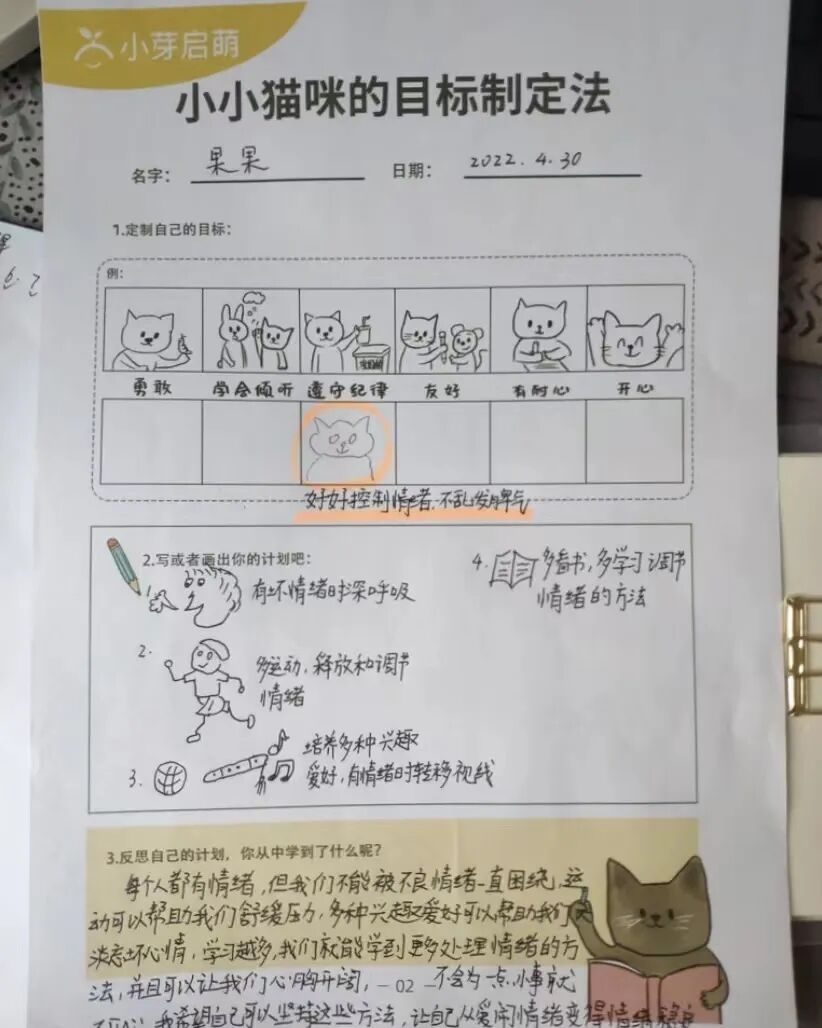 小芽启萌
小小猫咪的目标制定法
名字： 果果 日期： 2022.4.30
1.定制自己的目标：
例：
勇敢 学会倾听 遵守纪律 友好 有耐心 开心
好好控制情绪,不乱发脾气
2.写或者画出你的计划吧：
1. 有坏情绪时深呼吸
2. 多运动，释放和调节
情绪
3. 培养多种兴趣
爱好，有情绪时转移视线
4. 多看书，多学习调节
情绪的方法
3.反思自己的计划，你从中学到了什么呢？
每个人都有情绪，但我们不能被不良情绪一直困绕，运
动可以帮助我们舒缓压力，多种兴趣爱好可以帮助我们
淡忘坏心情，学习越多，我们就能学到更多处理情绪的方
法，并且可以让我们心胸开阔，不会为一点小事就
- 02 -
我希望自己可以坚持这些方法，让自己从爱闹情绪变得情绪稳定